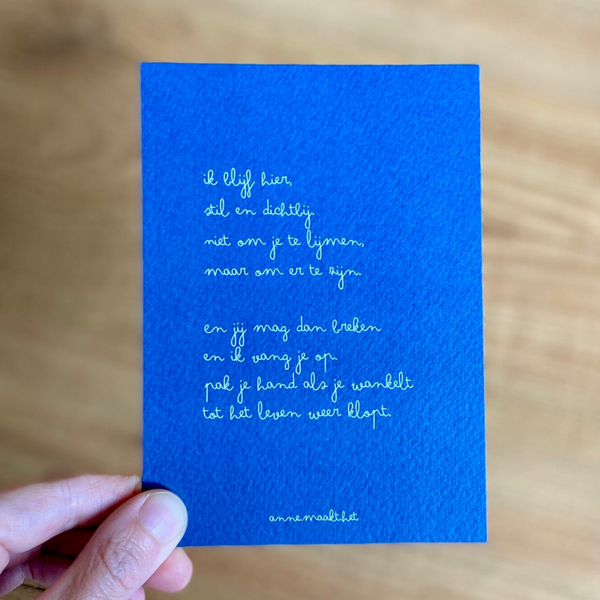 ik blijf hier,
stil en dichtbij.
niet om je te lijmen,
maar om er te zijn.
en jij mag dan breken
en ik vang je op.
pak je hand als je wankelt
tot het leven weer klopt.
anne.maakt.het